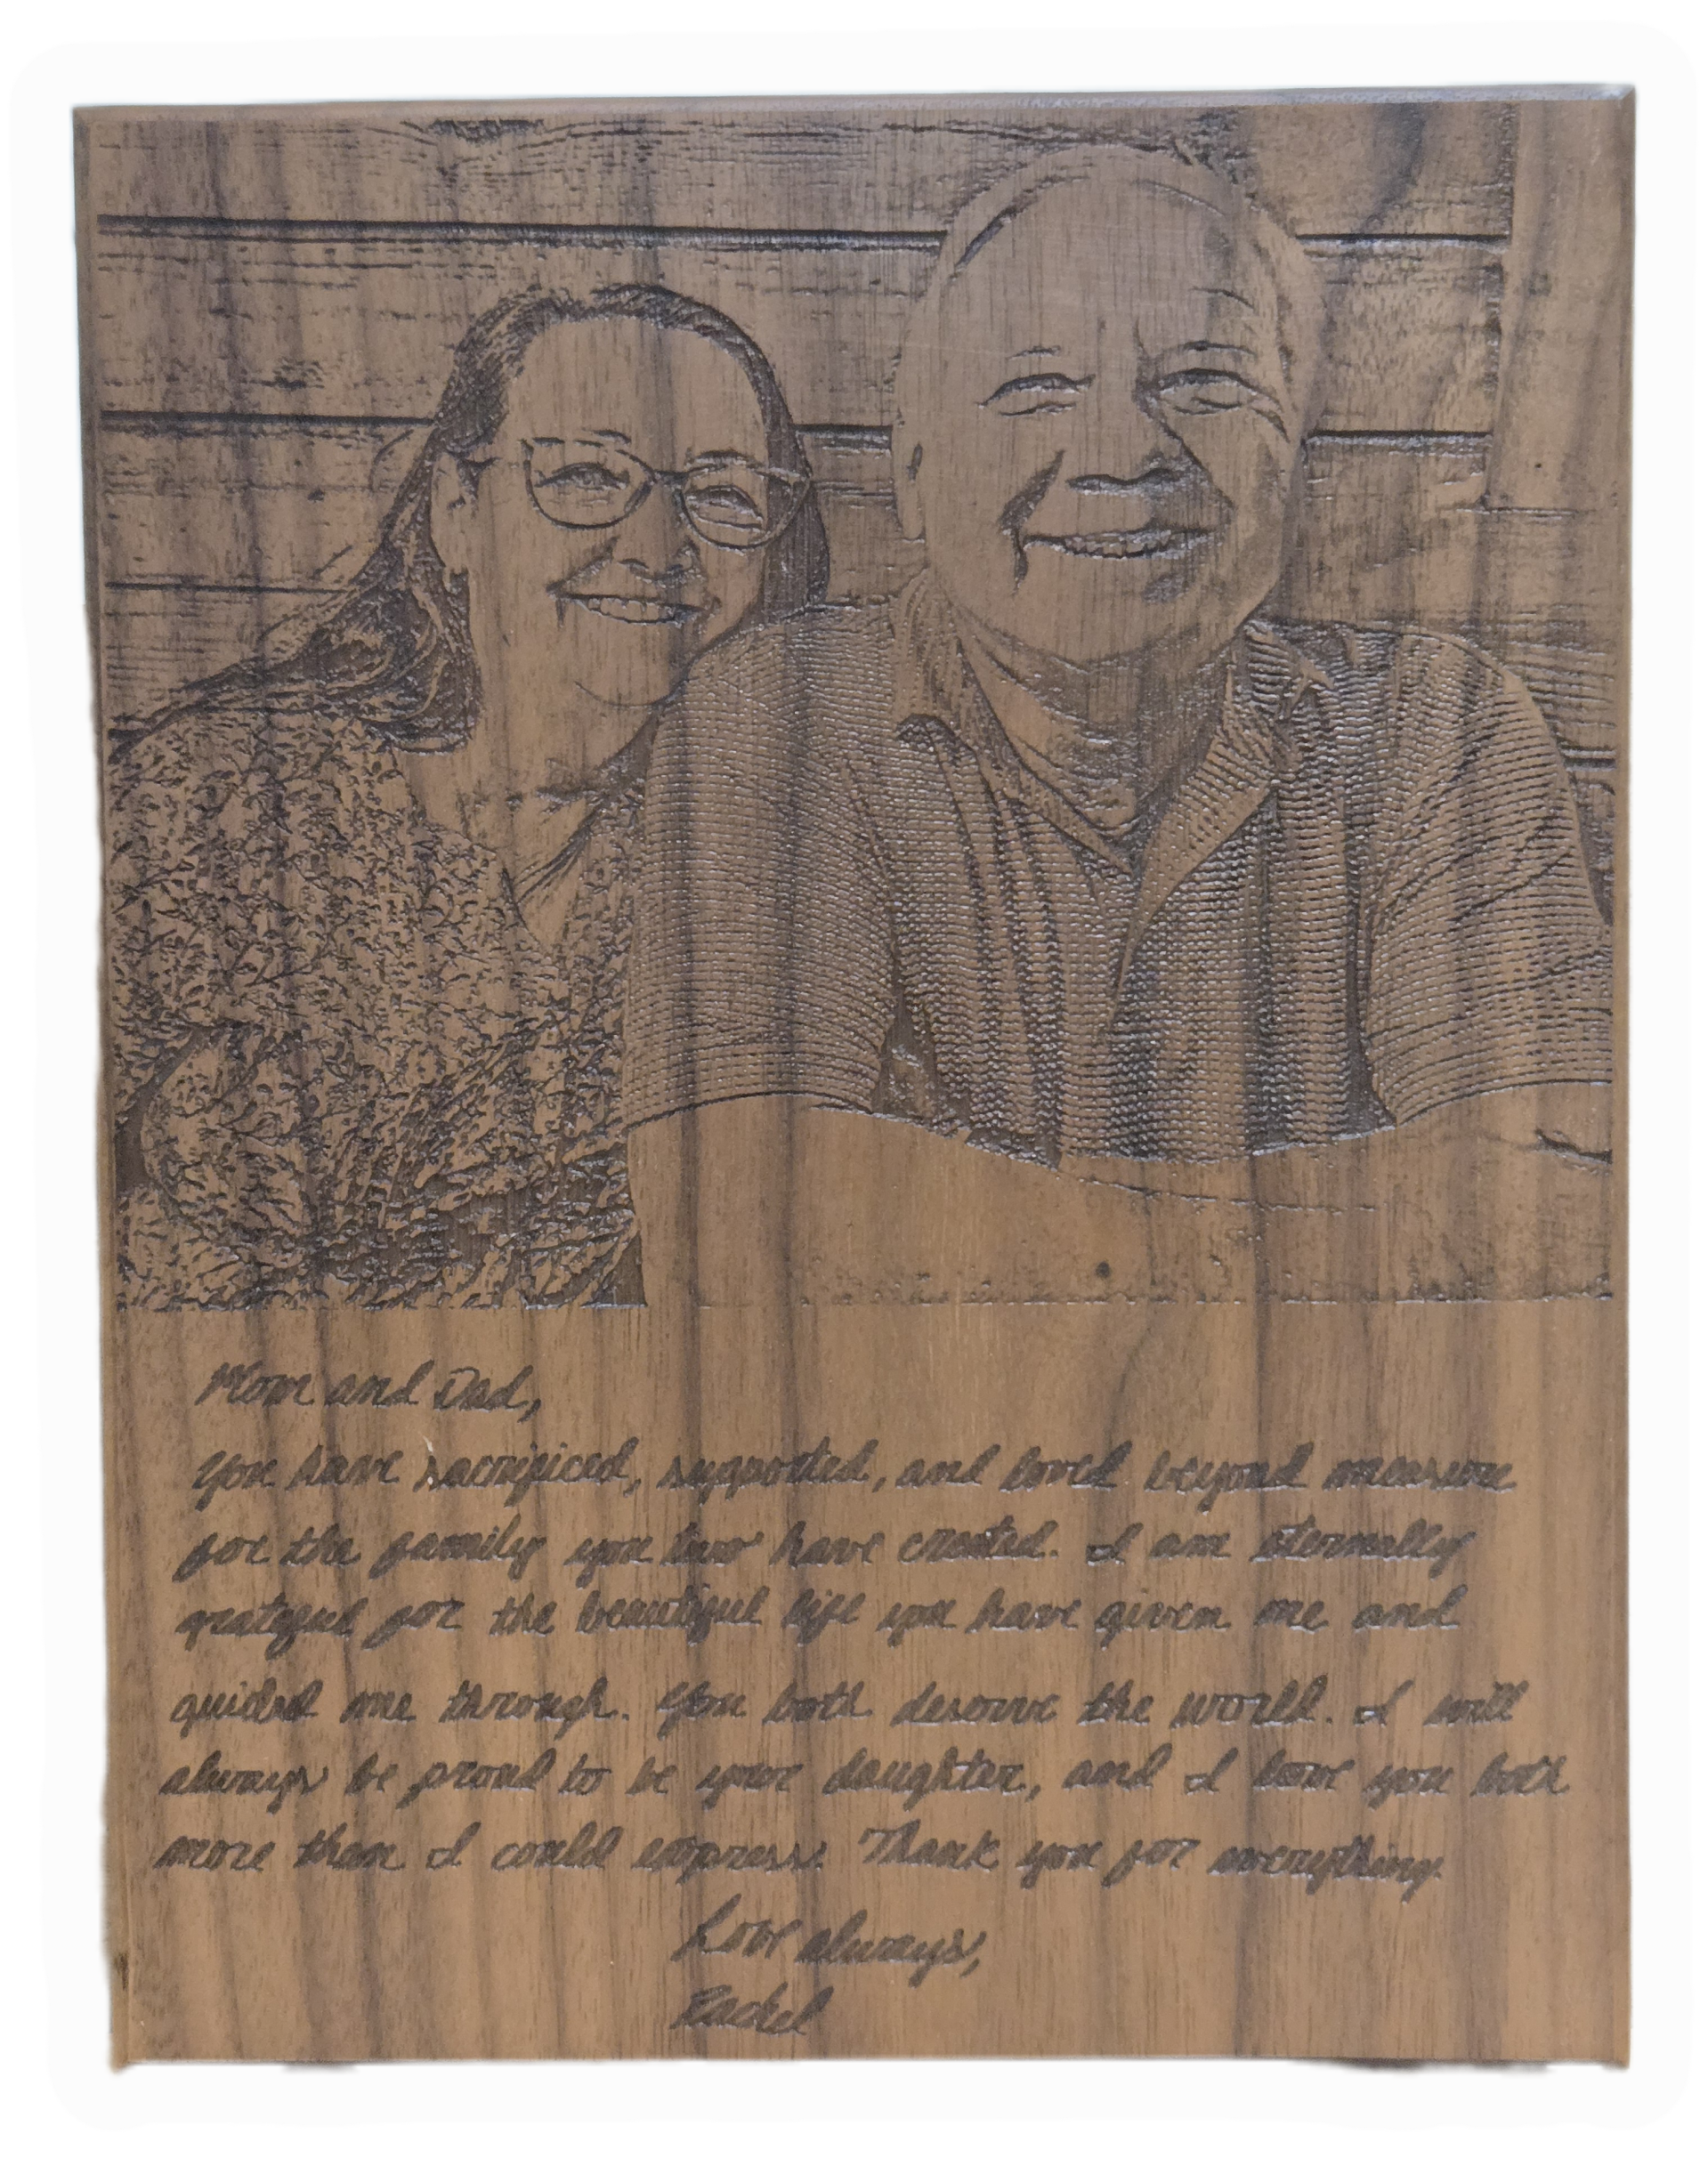 Mom and Dad,
You have sacrificed, supported, and loved beyond measure
for the family you two have created. I am eternally
grateful for the beautiful life you have given me and
guided me through. You both deserve the world. I will
always be proud to be your daughter, and I love you both
more than I could express. Thank you for everything.
Love always,
Rachel